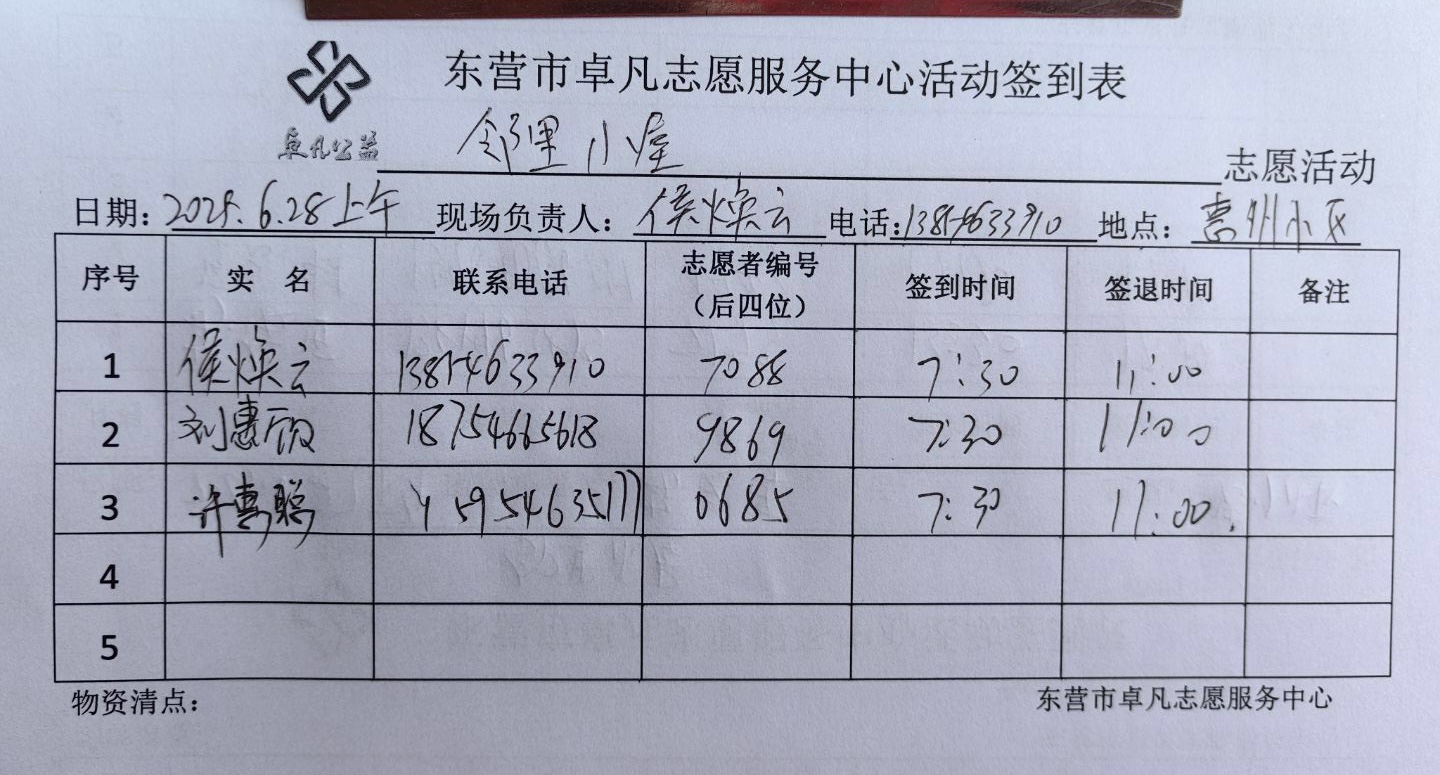 东营市卓凡志愿服务中心活动签到表
卓凡公益 邻里小屋 志愿活动
日期：2025.6.28上午 现场负责人：侯焕云 电话：13854633910 地点：惠州小区
序号 实 名 联系电话 志愿者编号（后四位） 签到时间 签退时间 备注
1 侯焕云 13854633910 7088 7:30 11:00
2 刘惠 18754665618 9869 7:30 11:00
3 许 15954635177 0685 7:30 11:00.
4
5
物资清点： 东营市卓凡志愿服务中心